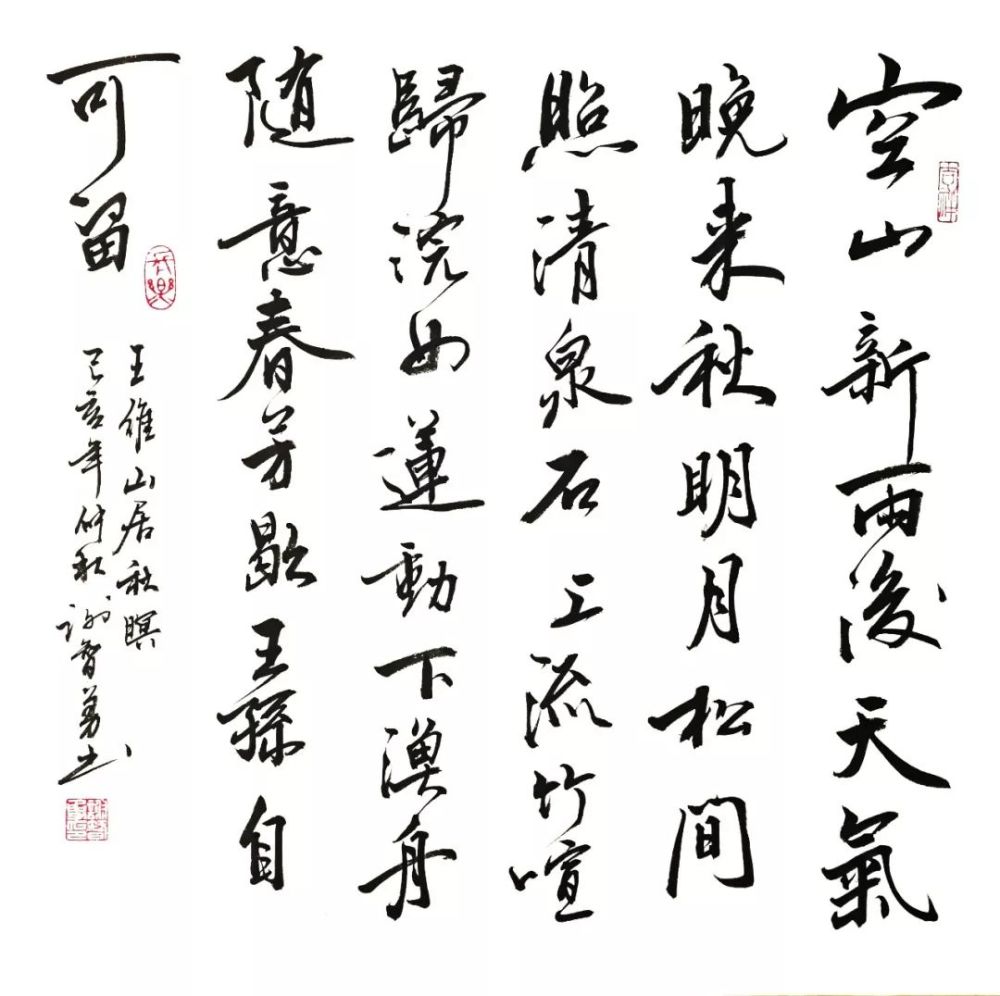 空山新雨後天氣
晚来秋明月松間
照清泉石上流竹喧
歸浣女蓮動下漁舟
随意春芳歇王孫自
可留
王維山居秋暝
己亥年仲秋谢智勇书